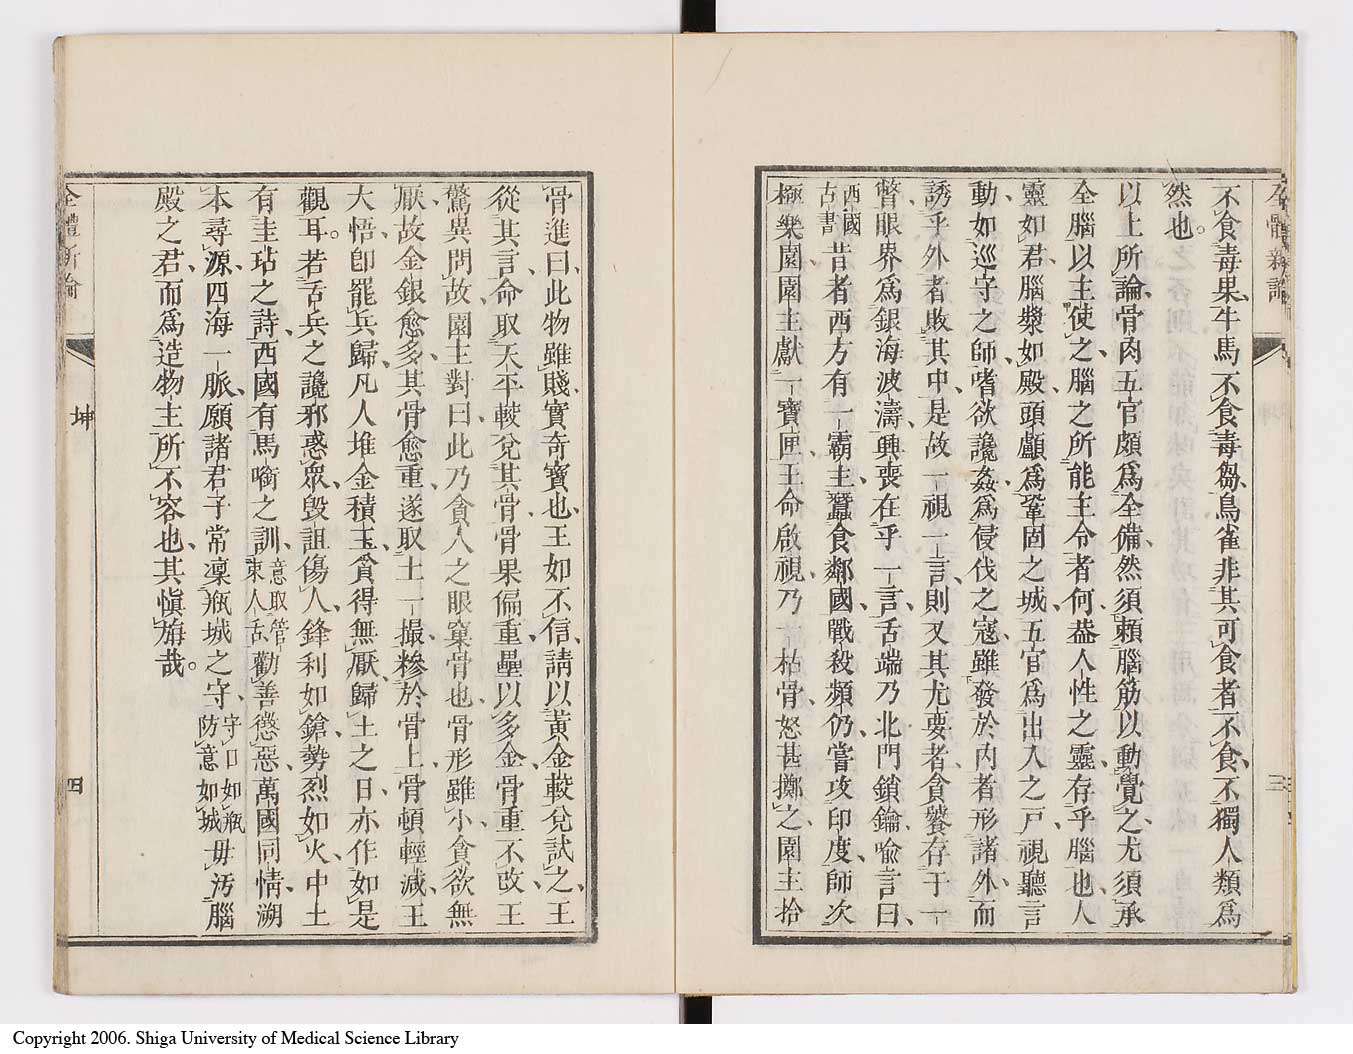 全體新論
三
不食毒果、牛馬不食毒芻、鳥雀非其可食者不食、不獨人類爲
然也。
以上所論、骨肉五官頗爲全備、然須賴腦筋以動覺之、尤須承
全腦以主使之、腦之所能主令者何、葢人性之靈、存乎腦也、人
靈如君、腦漿如殿、頭顱爲鞏固之城、五官爲出入之戸、視聽言
動、如巡守之師、嗜欲讒姦、爲侵伐之寇、雖發於内者形諸外、而
誘乎外者敗其中、是故一視一言、則又其尤要者、貪饕存于一
瞥、眼界爲銀海波濤、興喪在乎一言、舌端乃北門鎖鑰、喩言曰、
西國古書昔者西方有一霸主、蠶食鄰國、戰殺頻仍、嘗攻印度、師次
極樂園、園主獻一寶匣、王命啟視、乃一枯骨、怒甚擲之、園主拾
骨進曰、此物雖賤、實奇寶也、王如不信、請以黃金較兌試之、王
從其言、命取天平較兌其骨、骨果偏重、壘以多金、骨重不改、王
驚異問故、園主對曰、此乃貪人之眼窠骨也、骨形雖小、貪欲無
厭、故金銀愈多、其骨愈重、遂取土一撮、糝於骨上、骨頓輕減、王
大悟、卽罷兵歸、凡人堆金積玉、貪得無厭、歸土之日、亦作如是
觀耳。若舌兵之讒邪惑衆、毁詛傷人、鋒利如鎗、勢烈如火、中土
有圭玷之詩、西國有馬㗸之訓、意取管束人舌勸善懲惡、萬國同情、溯
本尋源、四海一脈、願諸君子常凜瓶城之守、守口如瓶防意如城毋汚腦
殿之君、而爲造物主所不容也、其愼旃哉。
全體新論
坤
四
Copyright 2006. Shiga University of Medical Science Library